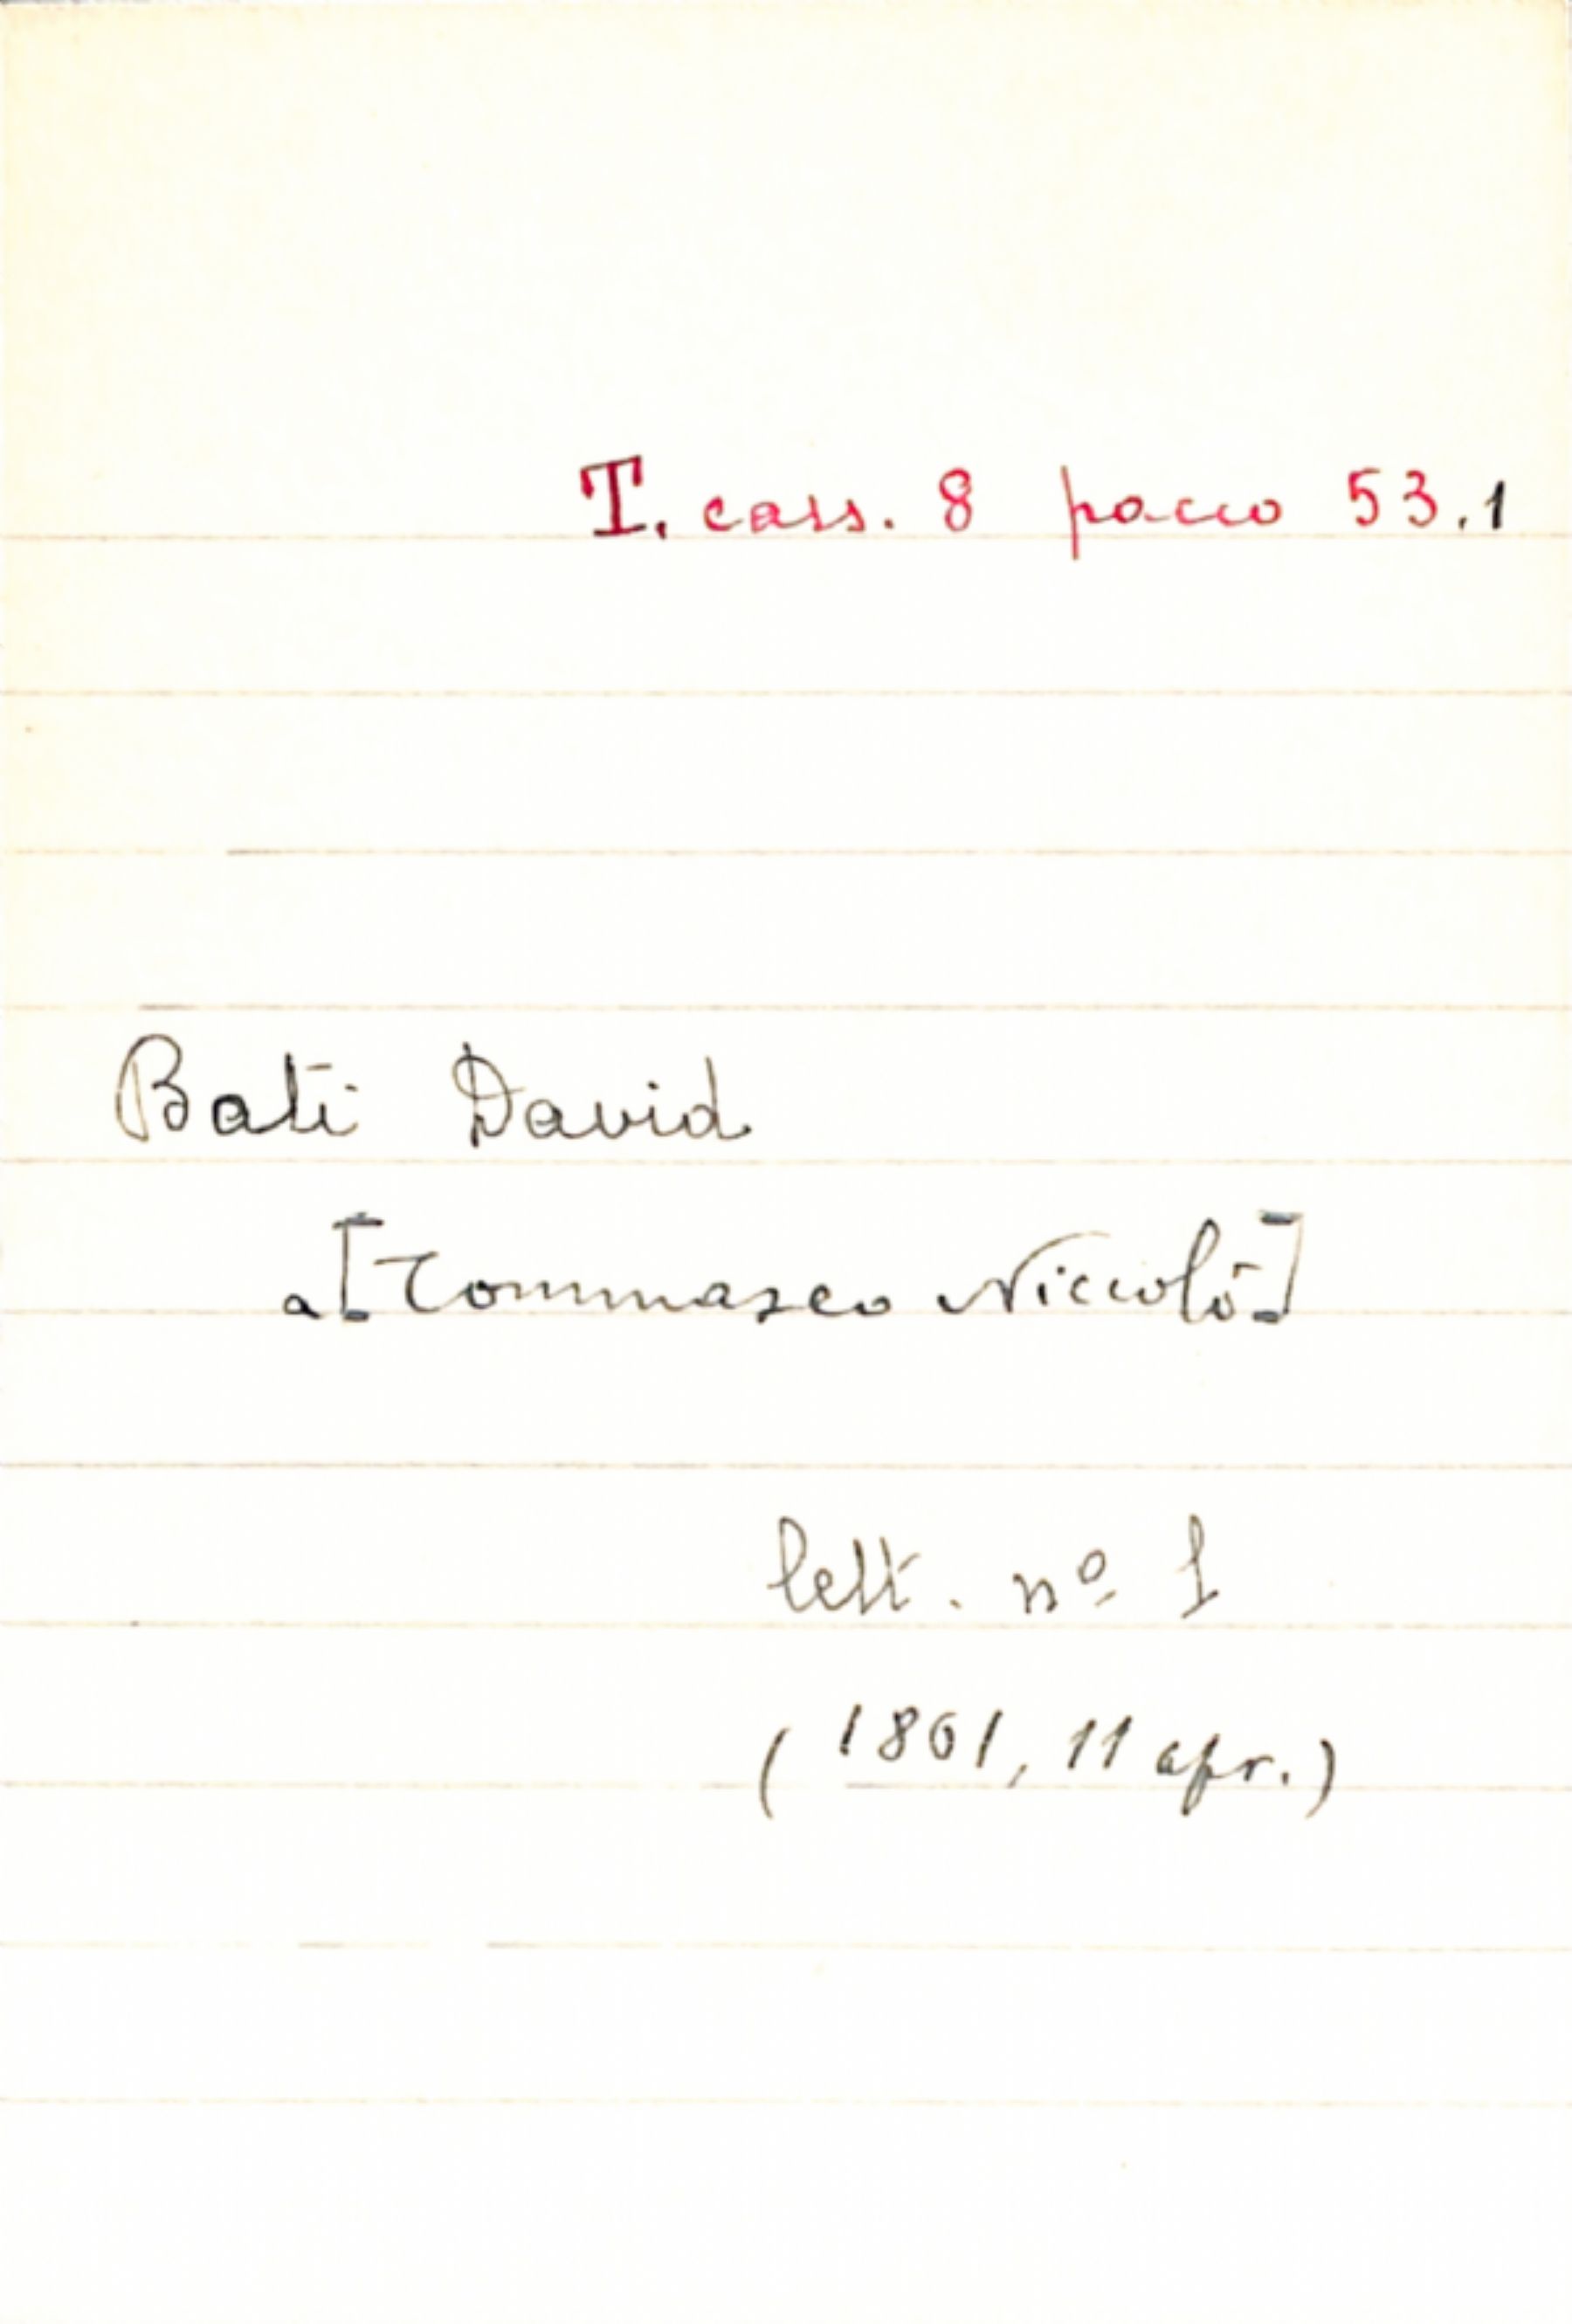 T. cass. 8 pacco 53.1
Bati David
a [Tommaseo Niccolò]
lett. nº 1
(1861, 11 apr.)